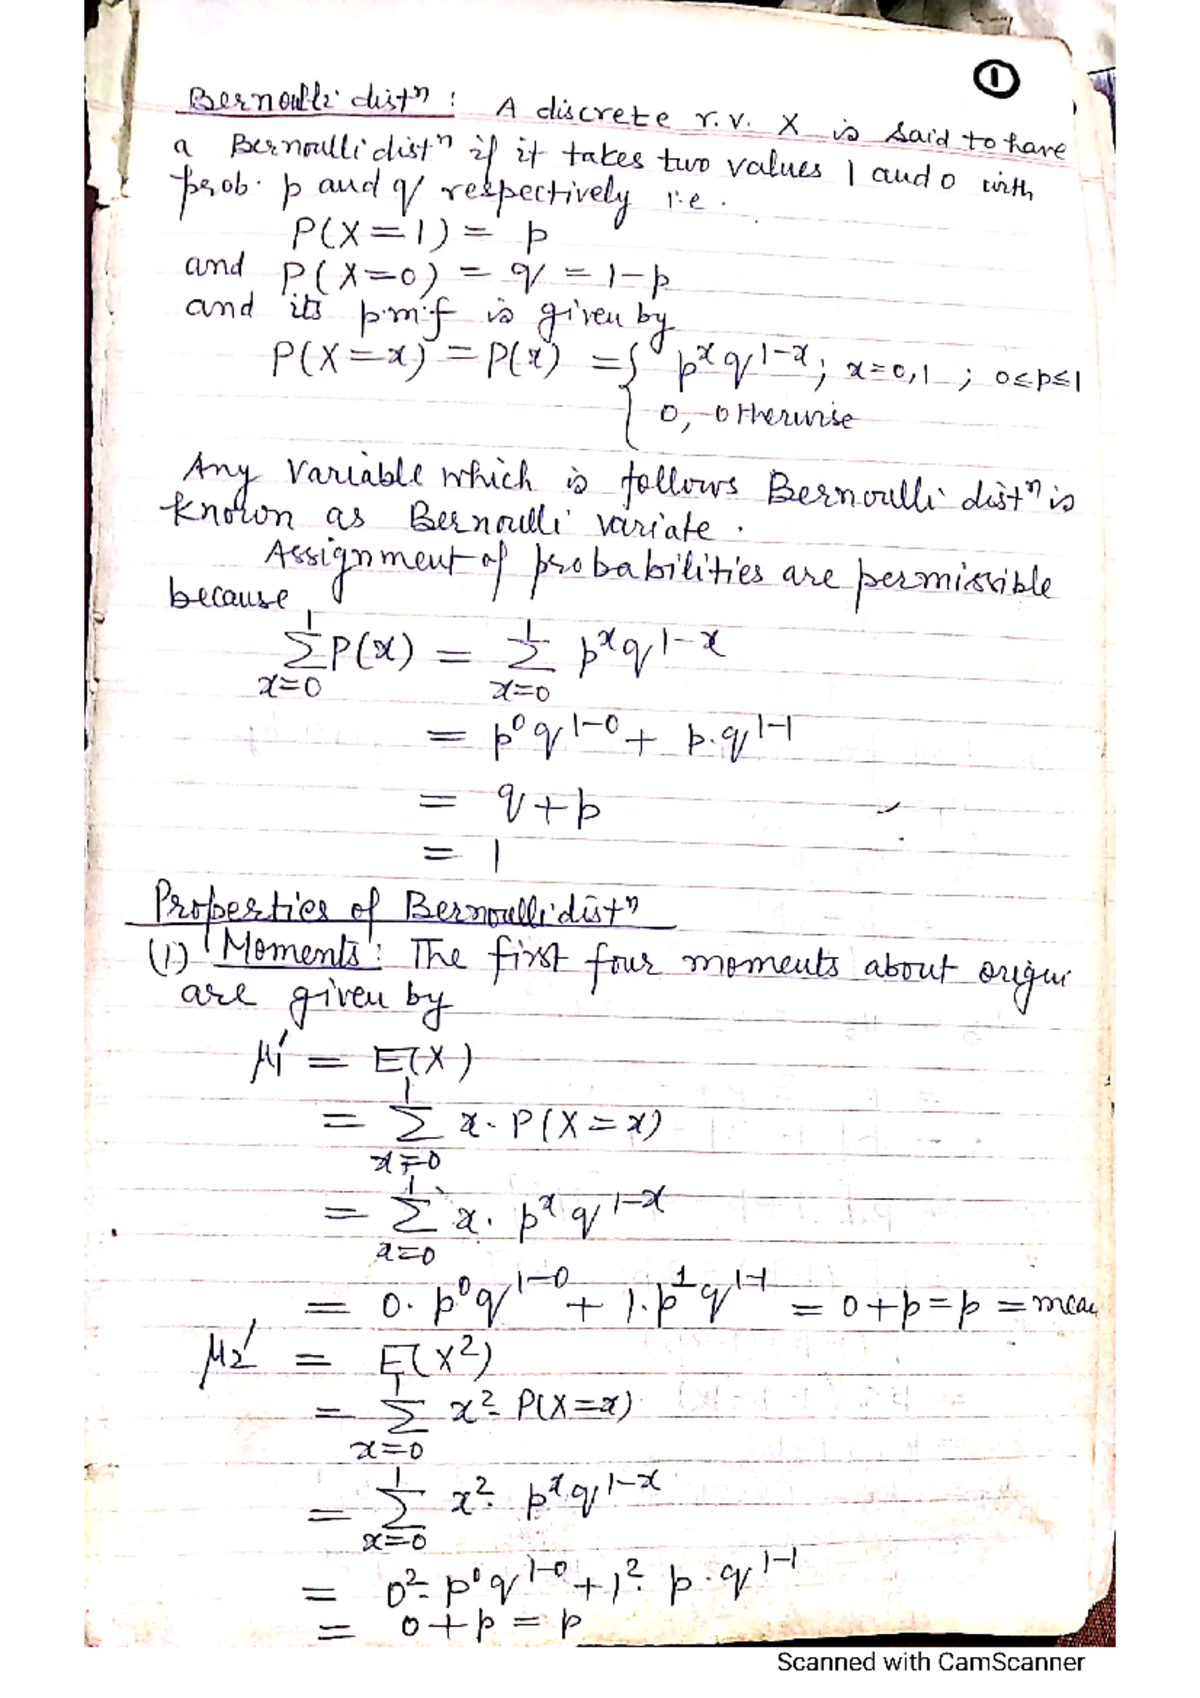 ①
Bernoulli distⁿ : A discrete r.v. X is said to have
a Bernoulli distⁿ if it takes two values 1 and 0 with
prob. p and q respectively i.e.
P(X=1) = p
and P(X=0) = q = 1-p
and its p.m.f is given by
P(X=x) = P(x) = { pˣq¹⁻ˣ ; x=0,1 ; 0≤p≤1
0, otherwise
Any variable which is follows Bernoulli distⁿ is
known as Bernoulli variate.
Assignment of probabilities are permissible
because
1 1
Σ P(x) = Σ pˣq¹⁻ˣ
x=0 x=0
= p⁰q¹⁻⁰ + p.q¹⁻¹
= q+p
= 1
Properties of Bernoulli distⁿ
(1) Moments : The first four moments about origin
are given by
μ₁′ = E(X)
1
= Σ x. P(X=x)
x=0
1
= Σ x. pˣq¹⁻ˣ
x=0
= 0. p⁰q¹⁻⁰ + 1.p¹q¹⁻¹ = 0+p = p = mea
μ₂′ = E(X²)
1
= Σ x². P(X=x)
x=0
1
= Σ x². pˣq¹⁻ˣ
x=0
= 0². p⁰q¹⁻⁰ + 1². p.q¹⁻¹
= 0+p = p
Scanned with CamScanner